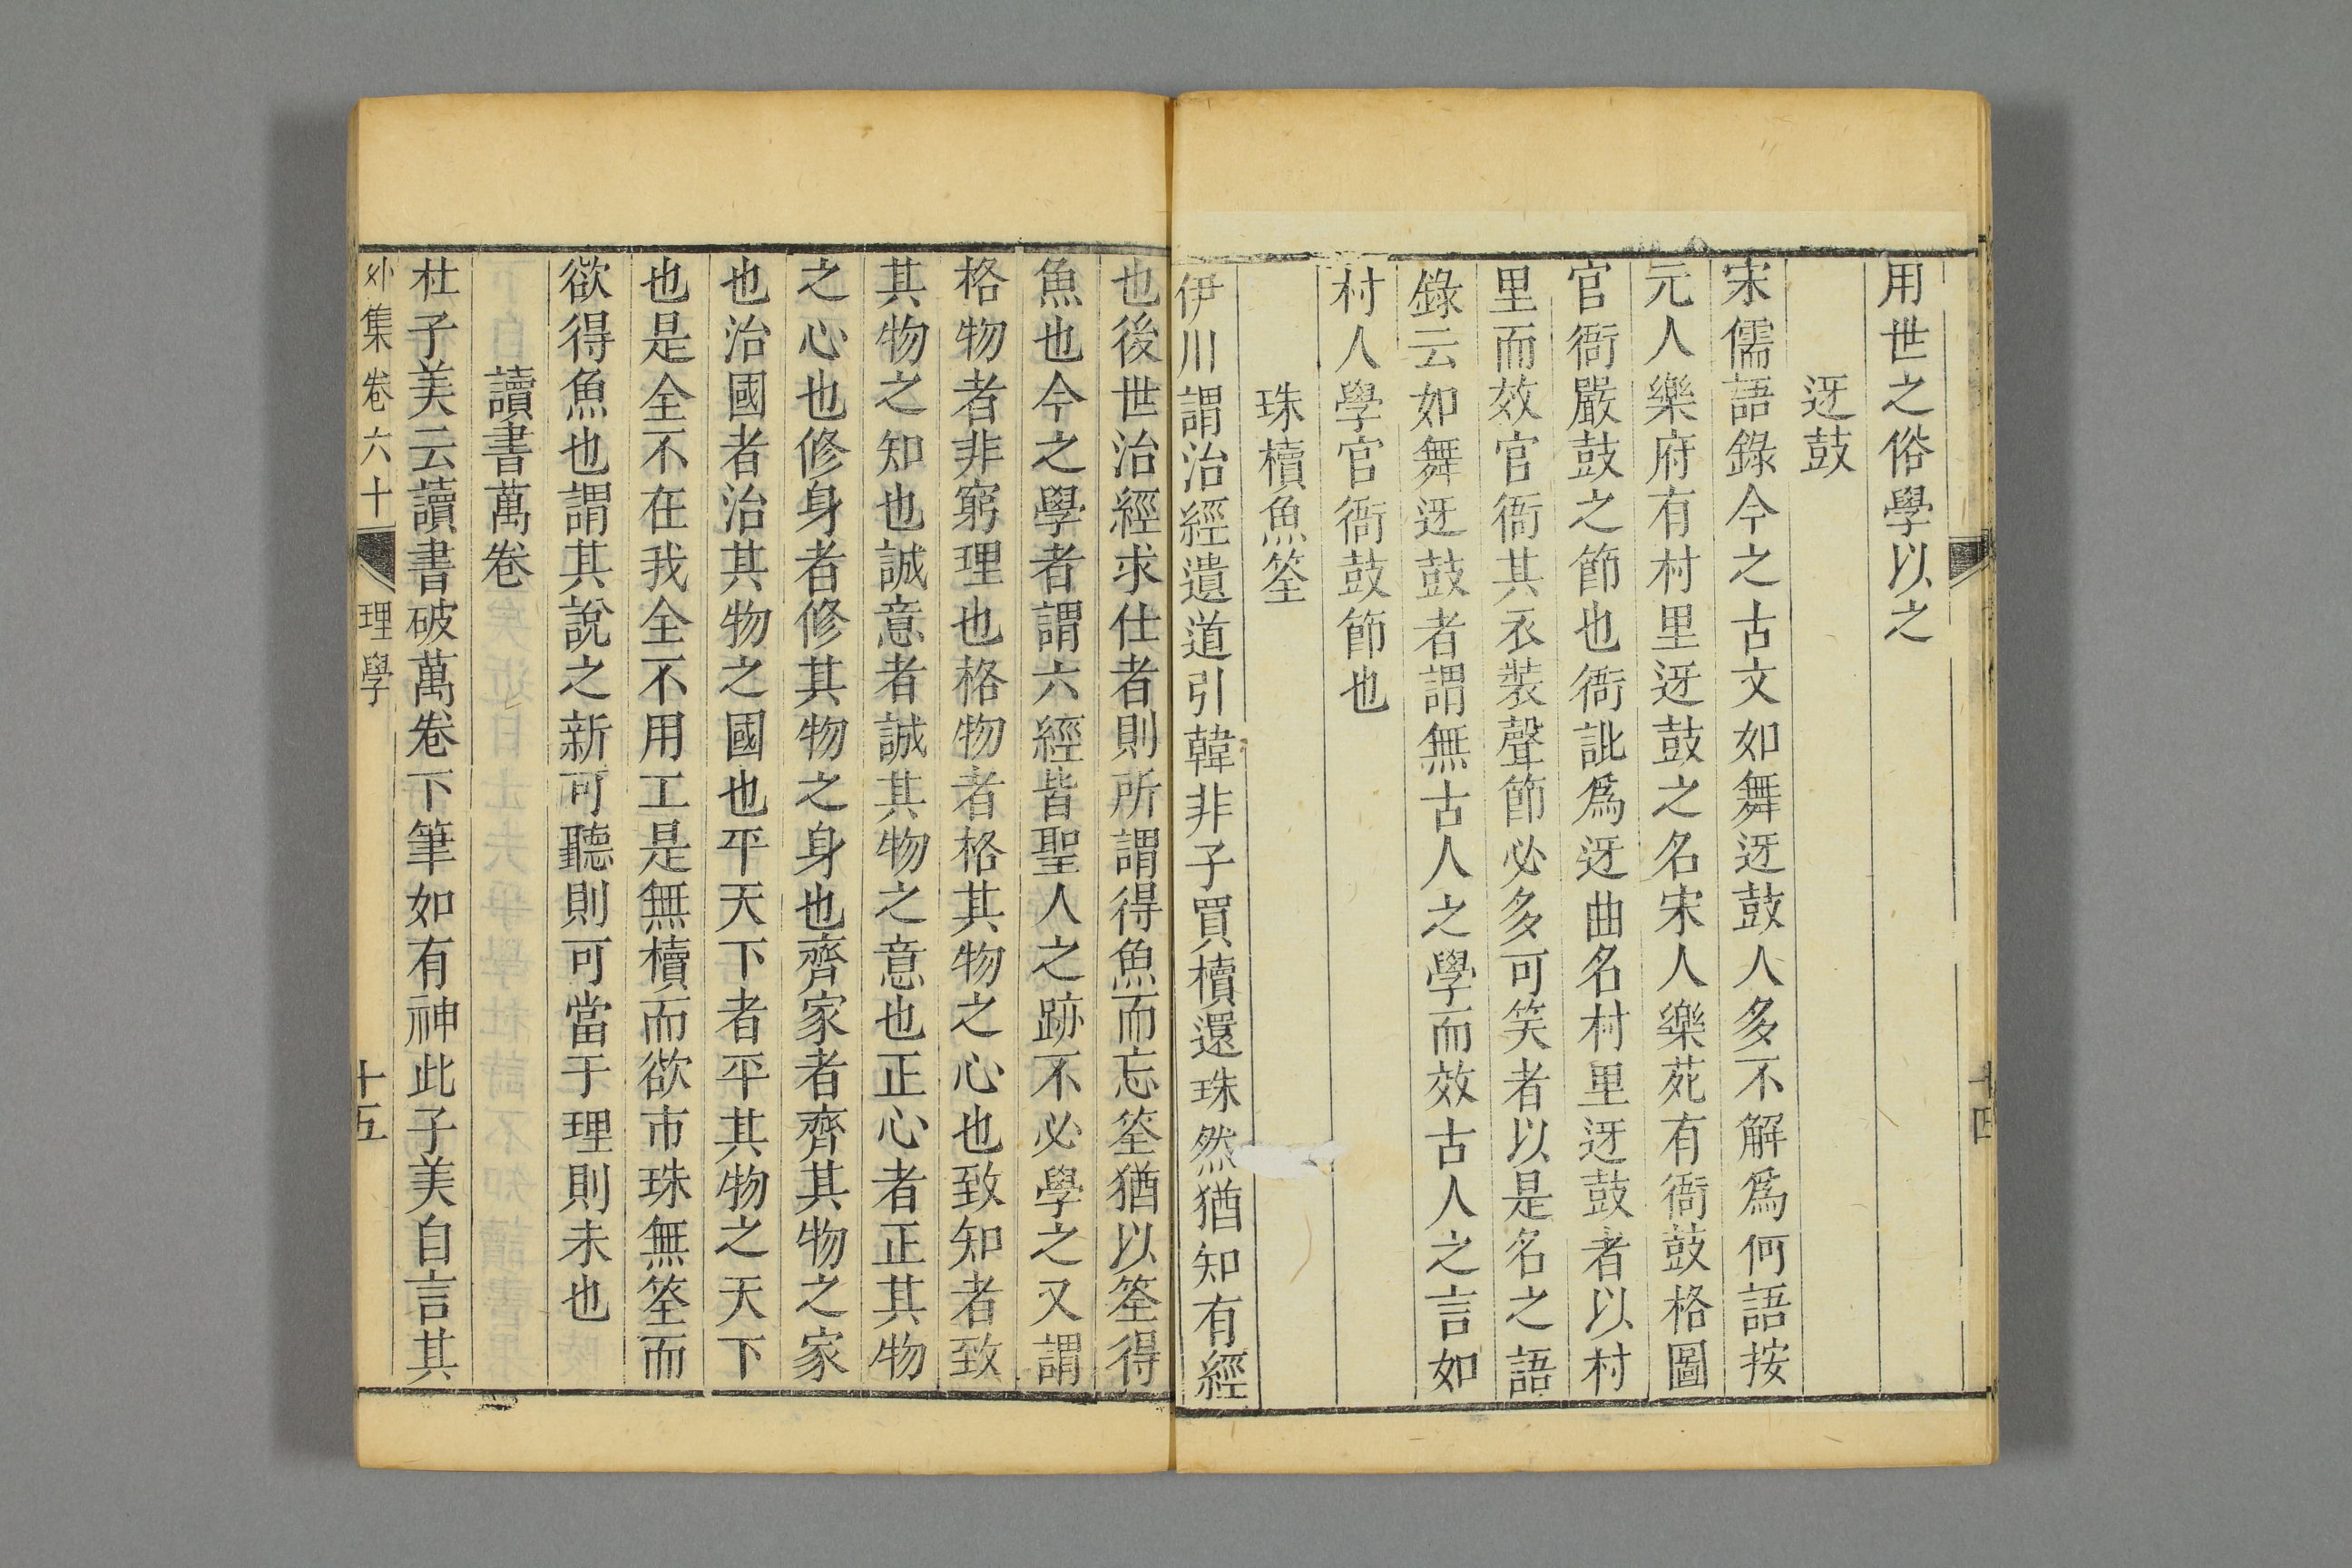 用世之俗學以之
迓鼓
宋儒語錄今之古文如舞迓鼓人多不解爲何語按
元人樂府有村里迓鼓之名宋人樂苑有衙鼓格圖
官衙嚴鼓之節也衙訛爲迓曲名村里迓鼓者以村
里而效官衙其衣裝聲節必多可笑者以是名之語
錄云如舞迓鼓者謂無古人之學而效古人之言如
村人學官衙鼓節也
珠櫝魚筌
伊川謂治經遺道引韓非子買櫝還珠然猶知有經
也後世治經求仕者則所謂得魚而忘筌猶以筌得
魚也今之學者謂六經皆聖人之跡不必學之又謂
格物者非窮理也格物者格其物之心也致知者致
其物之知也誠意者誠其物之意也正心者正其物
之心也修身者修其物之身也齊家者齊其物之家
也治國者治其物之國也平天下者平其物之天下
也是全不在我全不用工是無櫝而欲市珠無筌而
欲得魚也謂其說之新可聽則可當于理則未也
讀書萬卷
杜子美云讀書破萬卷下筆如有神此子美自言其
外集卷六十 理學 十五